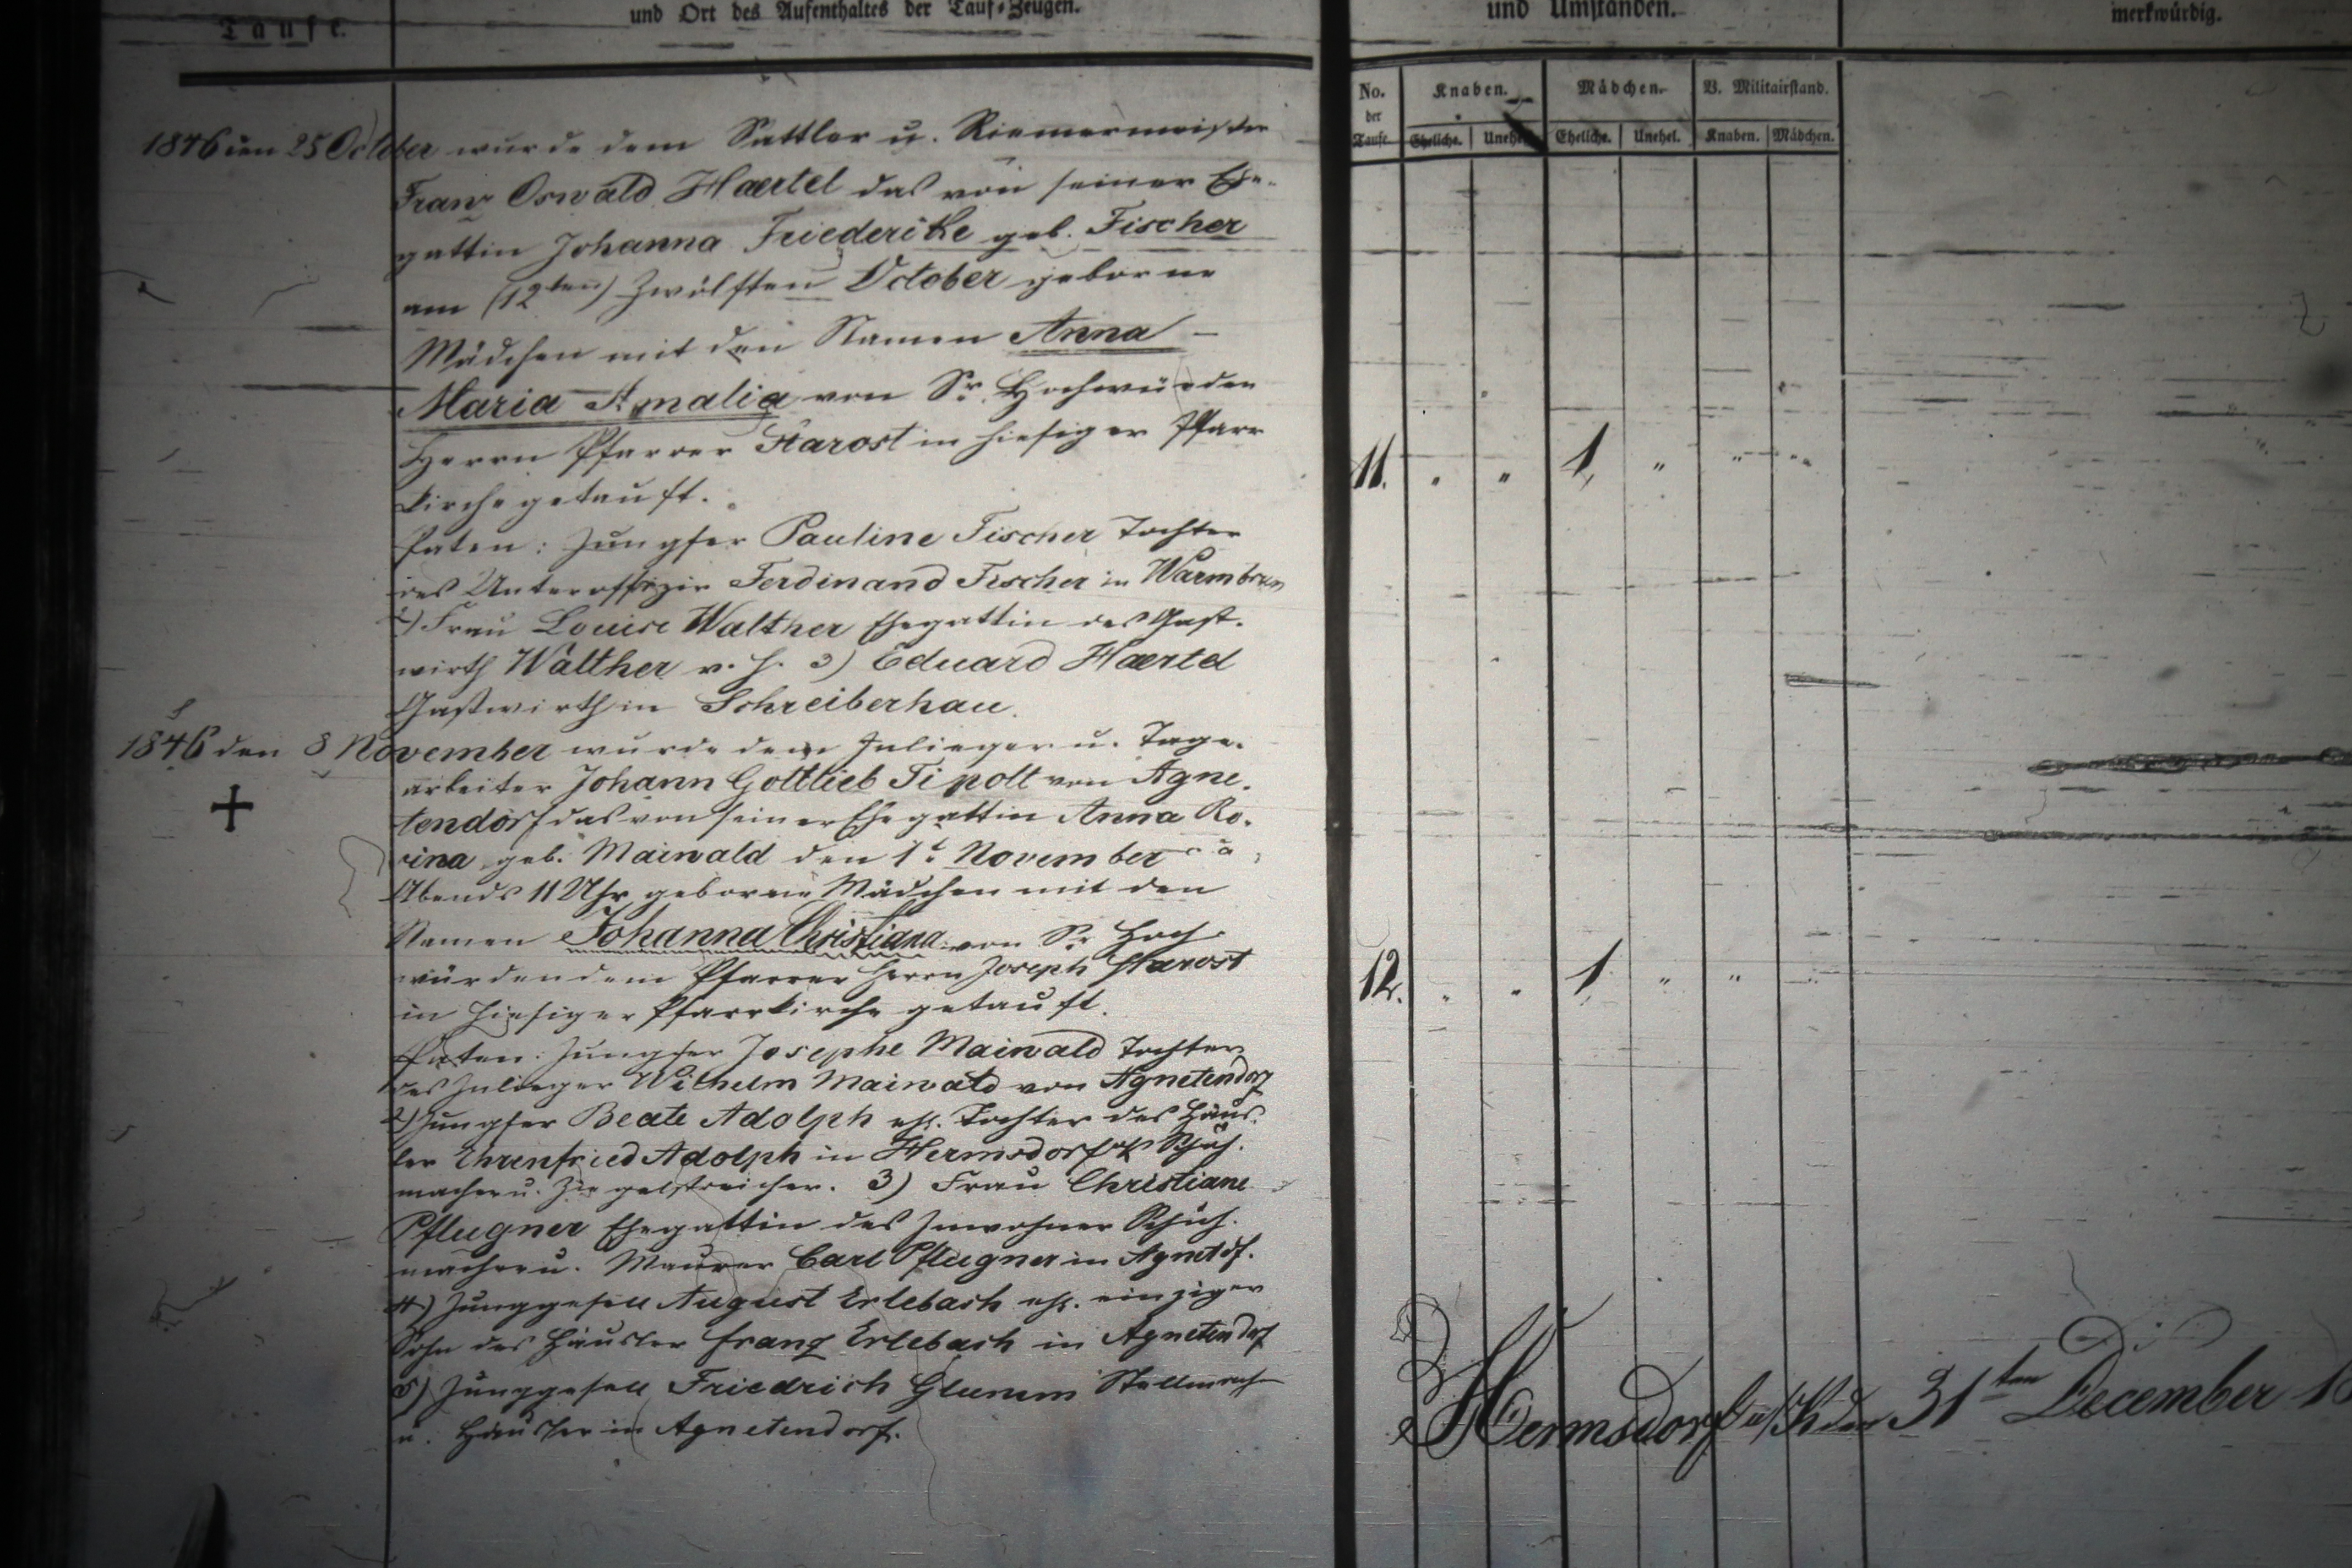 Taufe.
und Ort des Aufenthaltes der Tauf-Zeugen.
und Umständen.
merkwürdig.
No. der Taufe.
Knaben.
Mädchen.
V. Militairstand.
Eheliche.
Unehel.
Eheliche.
Unehel.
Knaben.
Mädchen.
1846 den 25 October wurde dem Sattler u. Riemermeister
Franz Oswald Haertel das von seiner Ehe-
gattin Johanna Friederike geb. Fischer
am (12ten) Zwölften October geborne
Mädchen mit den Namen Anna –
Maria Amalia von Sr. Hochwürden
Herrn Pfarrer Starost in hiesiger Pfarr
kirche getauft.
11. " " 1, " " "
Paten: Jungfer Pauline Fischer Tochter
des Unteroffizir Ferdinand Fischer in Warmbrun
2) Frau Louise Walther Ehegattin des Gast-
wirth Walther v. h. 3) Eduard Haertel
Gastwirth in Schreiberhau.
1846 den 8 November wurde dem Inlieger u. Tage-
arbeiter Johann Gottlieb Tipolt von Agne-
tendorf das von seiner Ehegattin Anna Ro-
sina geb. Maiwald den 1t November
Abends 11 Uhr geborne Mädchen mit den
Namen Johanna Christiana von Sr Hoch-
würden dem Pfarrer Herrn Joseph Starost
in hiesiger Pfarrkirche getauft.
12. " " 1, " "
Paten: Jungfer Josephe Maiwald Tochter
des Inlieger Wilhelm Maiwald von Agnetendorf
2) Jungfer Beate Adolph ehl. Tochter des Häus-
ler Ehrenfried Adolph in Hermsdorf Schuh-
macher u. Ziegelstreicher. 3) Frau Christiane
Pflugner Ehegattin des Inwohner Schuh-
macher u. Maurer Carl Pflugner in Agnetdf.
4) Junggesell August Erlebach ehl. einziger
Sohn des Häusler Franz Erlebach in Agnetendorf
5) Junggesell Friedrich Glumm Stellmach
u. Häusler in Agnetendorf.
Hermsdorf u/K den 31ten December